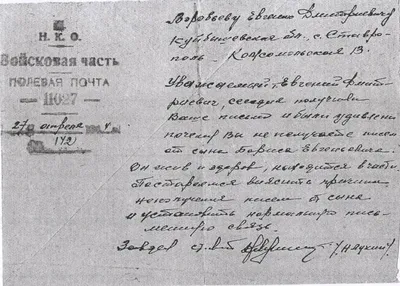 Н.К.О.
Войсковая часть
ПОЛЕВАЯ ПОЧТА
11027
27 апреля 194
142
Воробьеву Евгению Дмитриевичу
Куйбышевская обл. с. Ставро-
поль. Комсомольская 13.
Уважаемый, Евгений Дмит-
риевич, сегодня получили
Ваше письмо и были удивлены
почему Вы не получаете писем
от сына Бориса Евгеньевича.
Он жив и здоров, находится в части
Постараемся выяснить причины
неполучения писем от сына
и установить нормальную пись-
менную связь.
ст. л-т /Наукин/